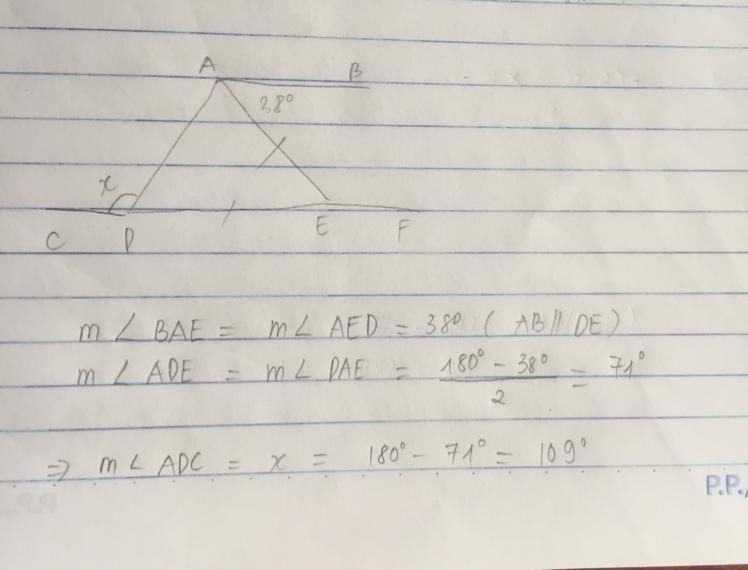 A B
38°
x
C D E F
m∠BAE = m∠AED = 38° ( AB // DE )
m∠ADE = m∠DAE = (180° - 38°)/2 = 71°
⇒ m∠ADC = x = 180° - 71° = 109°
P.P.